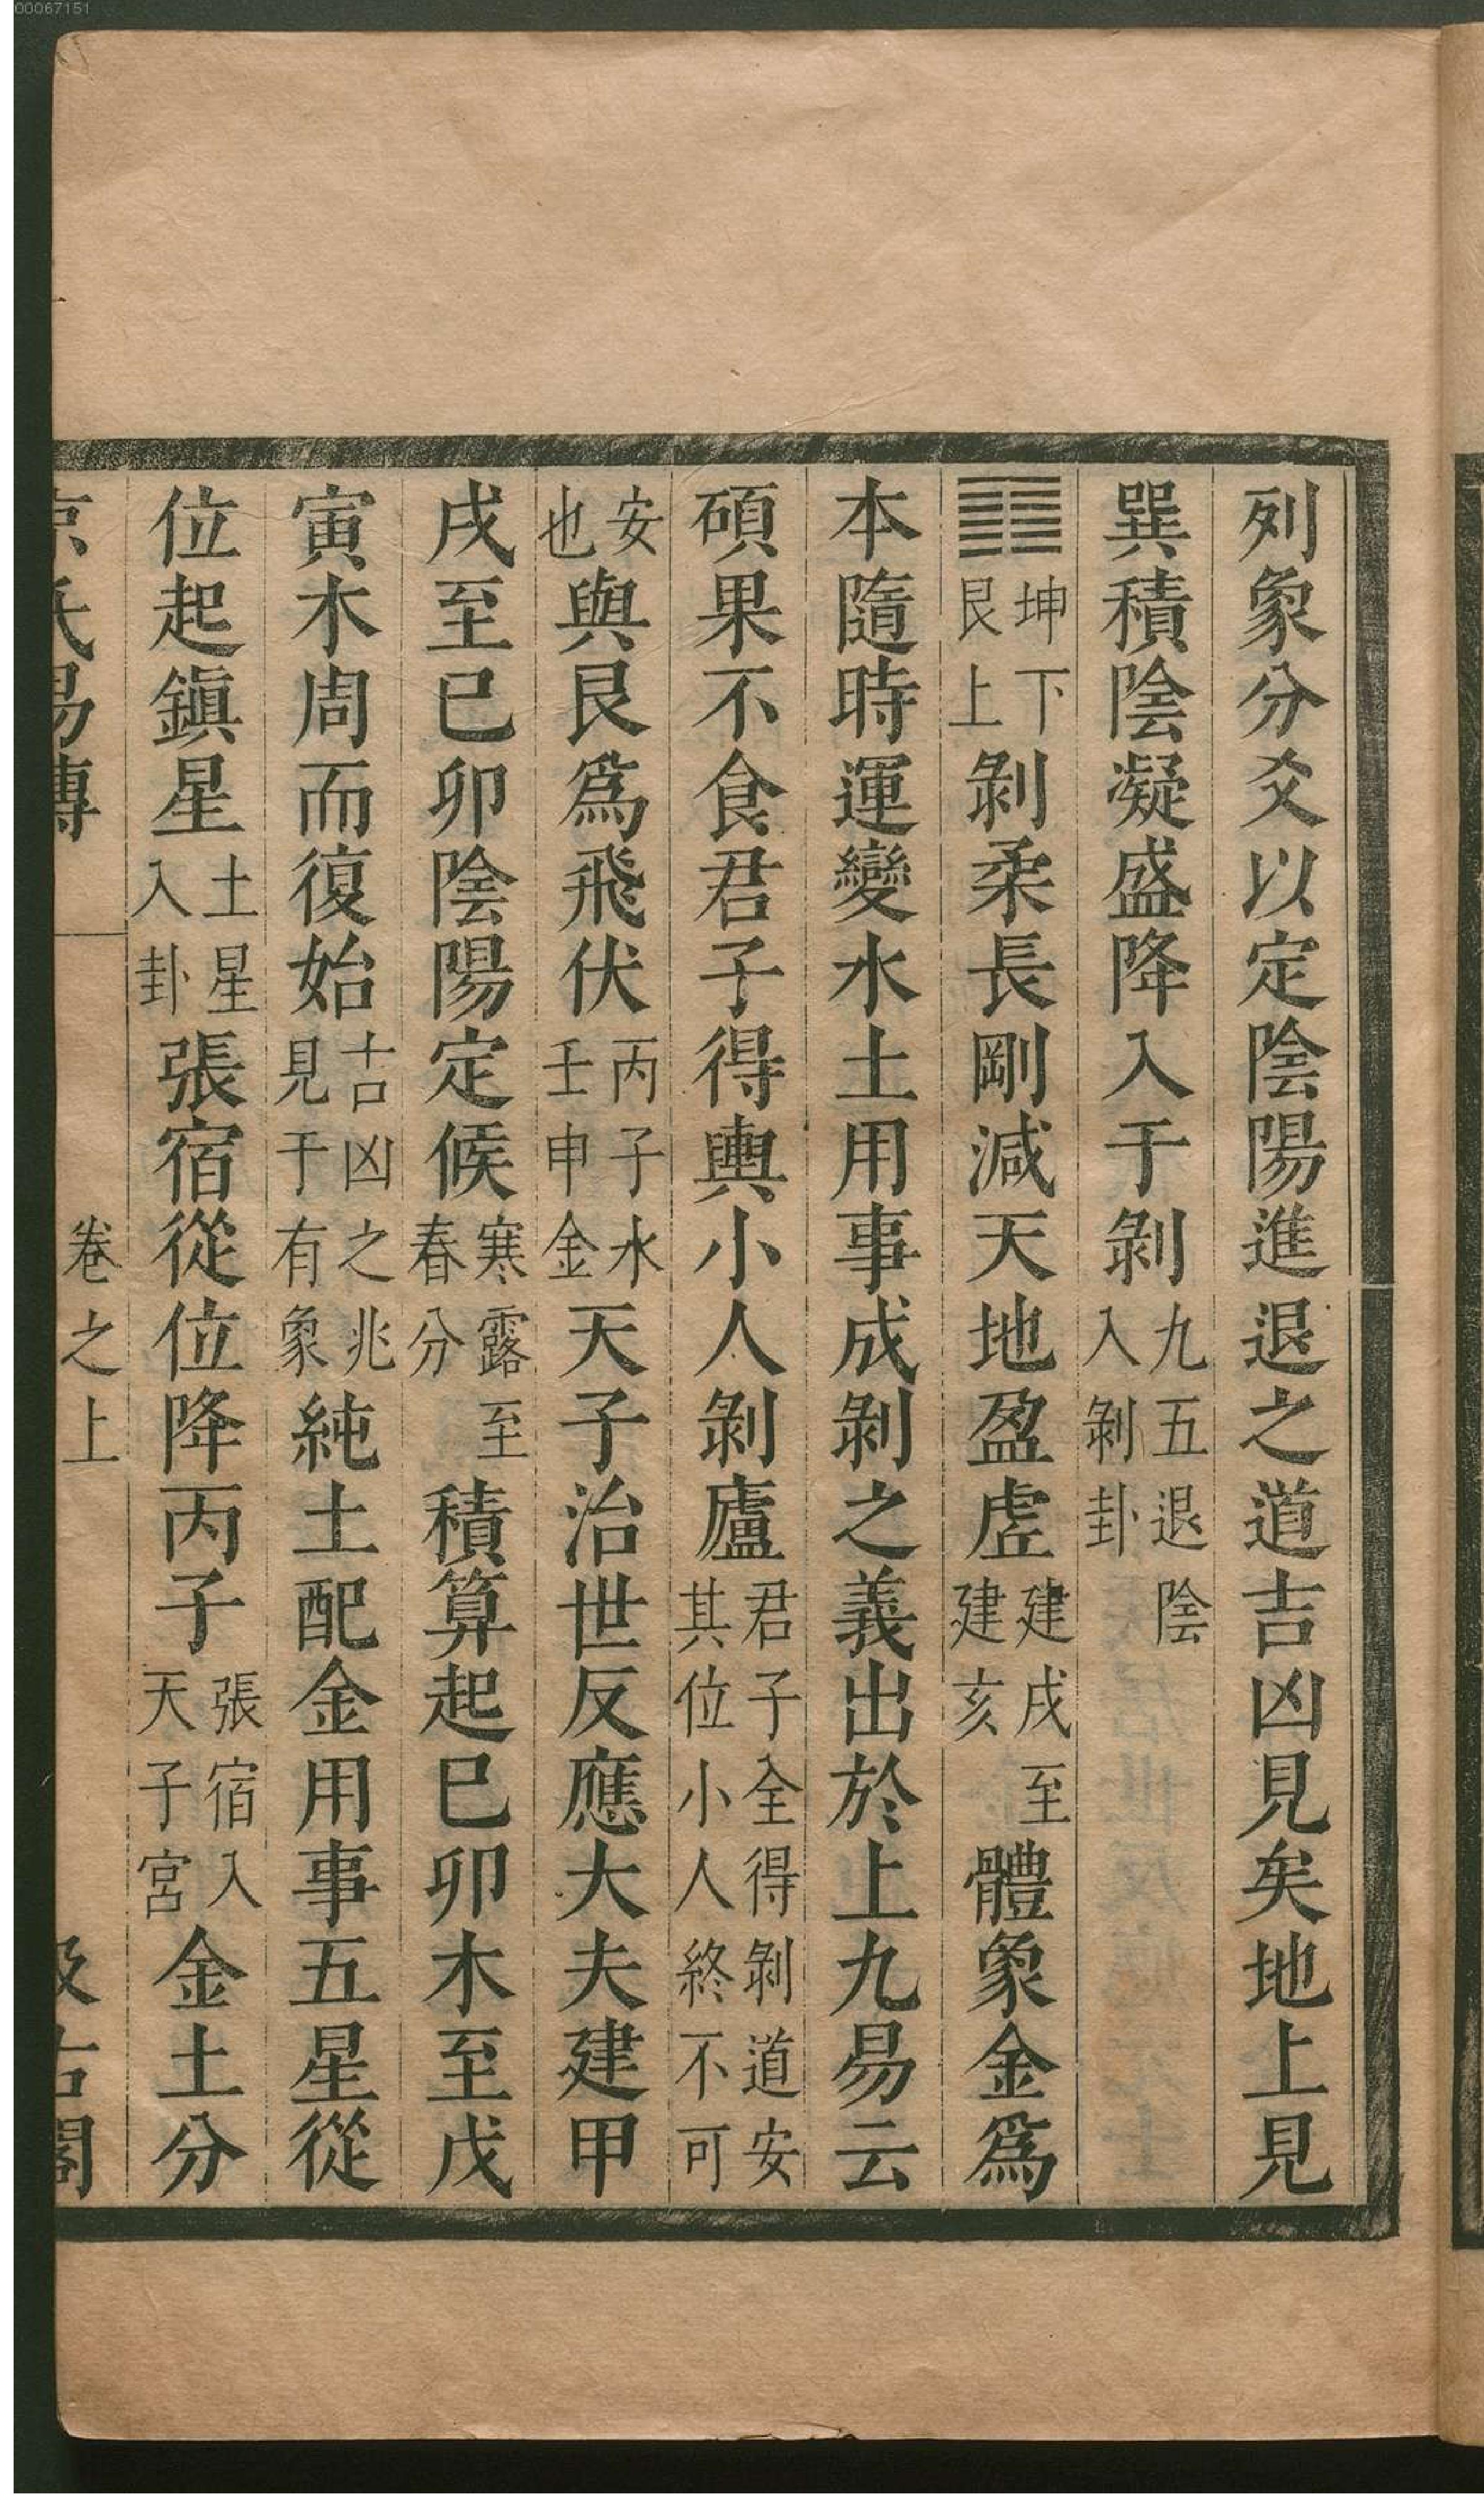 00067151
列象分爻以定陰陽進退之道吉凶見矣地上見
巽積陰凝盛降入于剝九五退陰入剝卦
䷖坤下艮上剝柔長剛減天地盈虛建戌至建亥體象金爲
本隨時運變水土用事成剝之義出於上九易云
碩果不食君子得輿小人剝廬君子全得剝道安其位小人終不可
安也與艮爲飛伏丙子水壬申金天子治世反應大夫建甲
戌至己卯陰陽定候寒露至春分積算起己卯木至戊
寅木周而復始吉凶之兆見于有象純土配金用事五星從
位起鎭星土星入卦張宿從位降丙子張宿入天子宮金土分
京氏易傳 卷之上 汲古閣